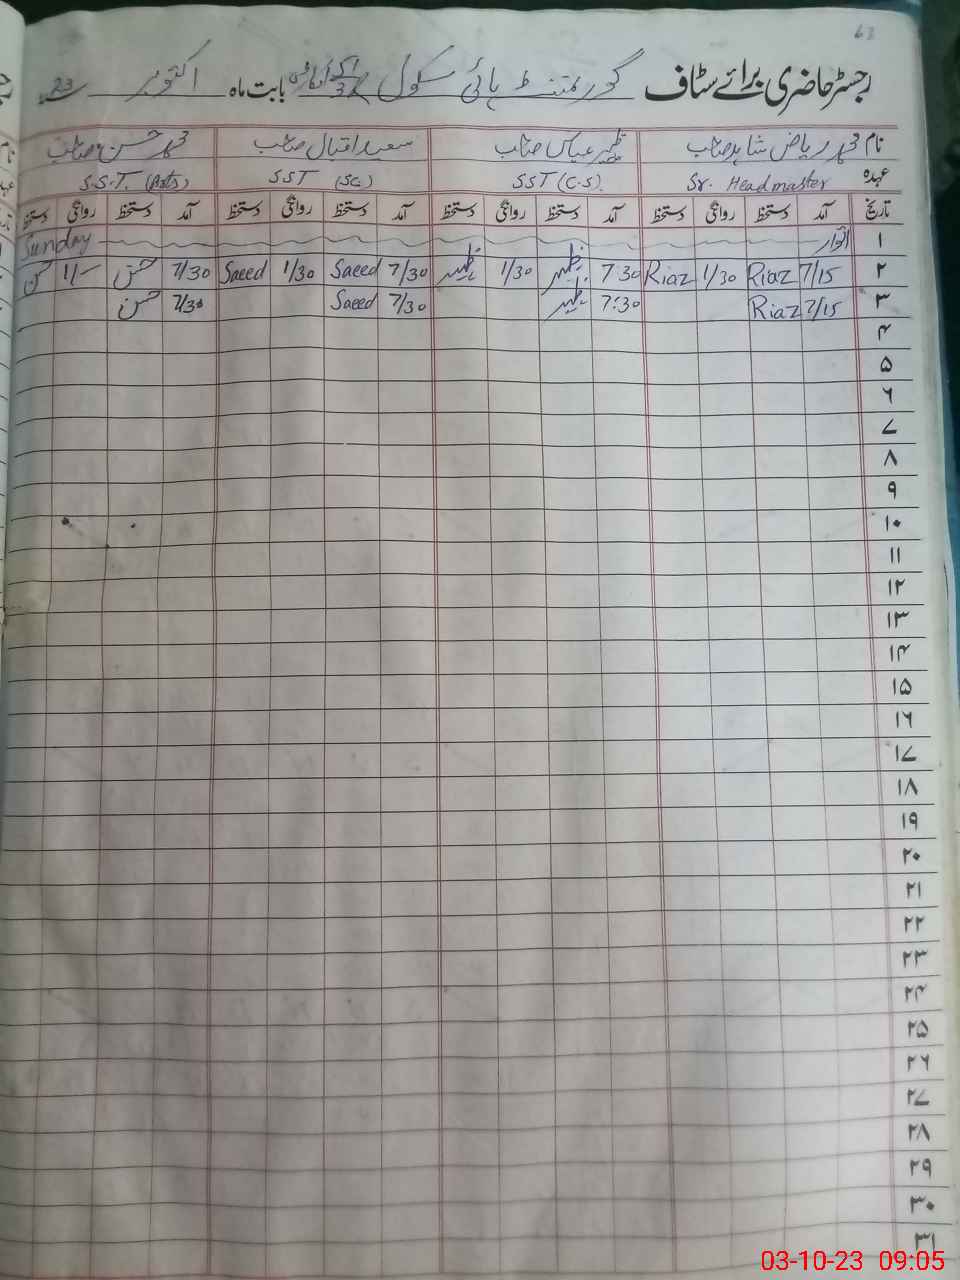 63
رجسٹر حاضری برائے سٹاف گورنمنٹ ہائی سکول بابت ماہ اکتوبر 23
نام محمد ریاض شاہد صاحب ظہیر عباس صاحب سعید اقبال صاحب محمد حسن صاحب
عہدہ Sr. Headmaster SST (C.S). SST (Sc.) S.S.T. (Arts)
تاریخ آمد دستخط روانگی دستخط آمد دستخط روانگی دستخط آمد دستخط روانگی دستخط آمد دستخط روانگی دستخط
۱ اتوار Sunday
۲ 7/15 Riaz 1/30 Riaz 7:30 ظہیر 1/30 ظہیر 7/30 Saeed 1/30 Saeed 7/30 حسن 1/- حسن
۳ 7/15 Riaz 7:30 ظہیر 7/30 Saeed 7/30 حسن
۴
۵
۶
۷
۸
۹
۱۰
۱۱
۱۲
۱۳
۱۴
۱۵
۱۶
۱۷
۱۸
۱۹
۲۰
۲۱
۲۲
۲۳
۲۴
۲۵
۲۶
۲۷
۲۸
۲۹
۳۰
۳۱
03-10-23 09:05